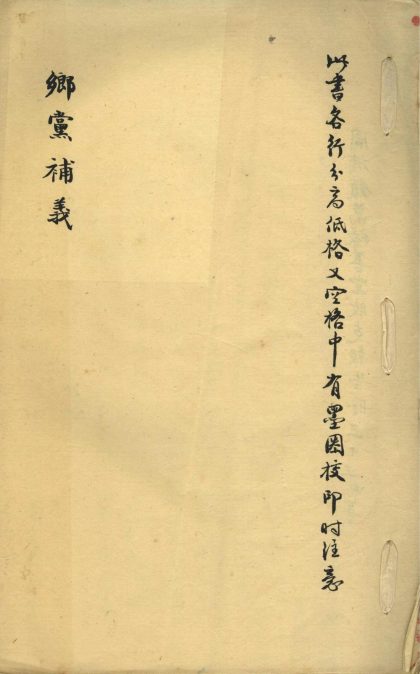 此書各行分高低格又空格中有墨圈校印时注意
鄉黨補義